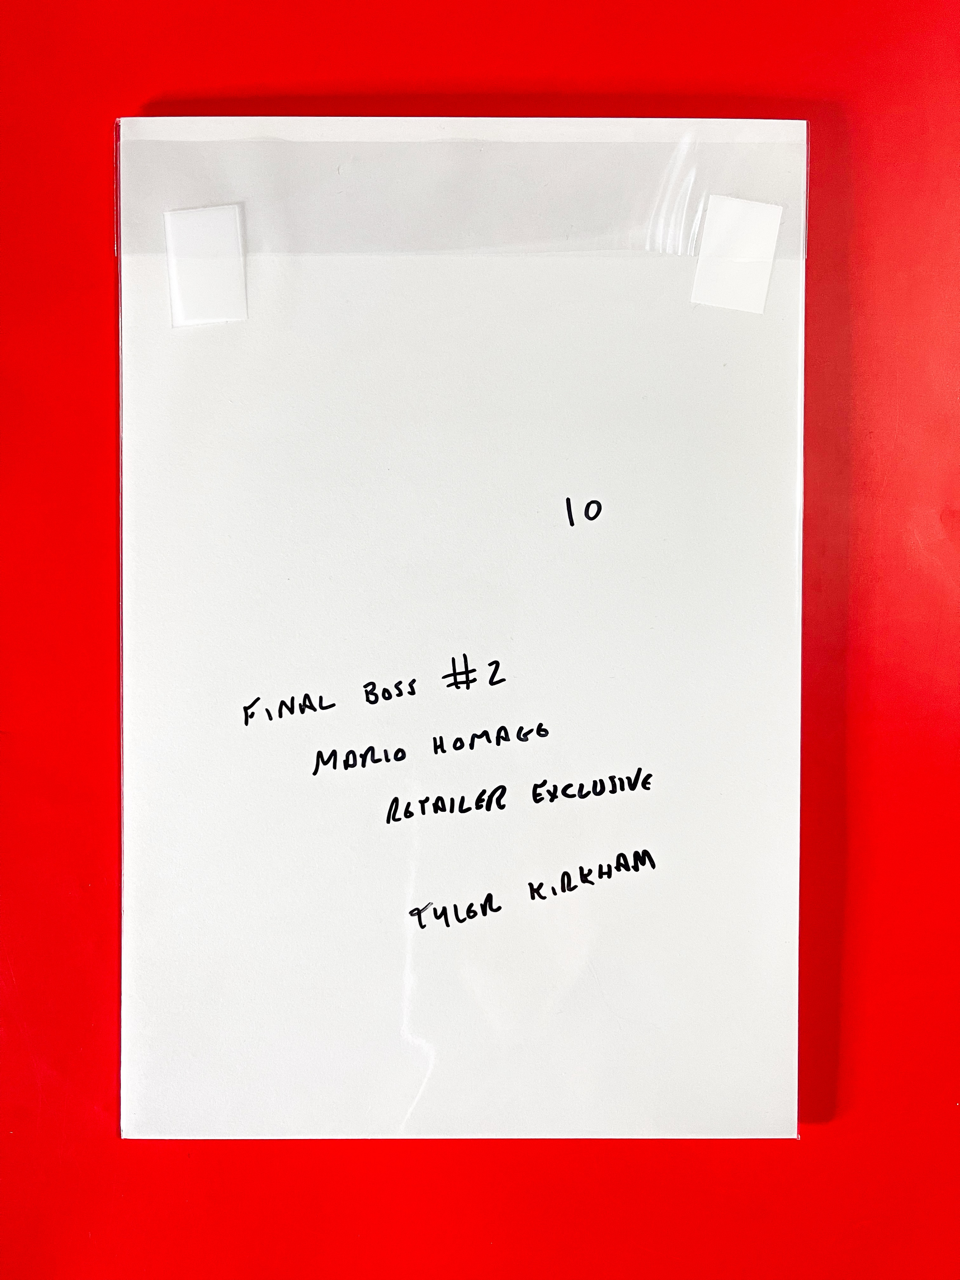 10
FINAL BOSS #2
MARIO HOMAGE
RETAILER EXCLUSIVE
TYLER KIRKHAM